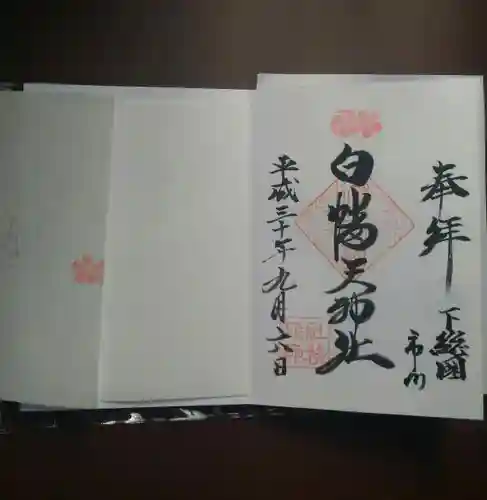 奉拝
下総國
市川
白幡天神社
平成三十年九月六日